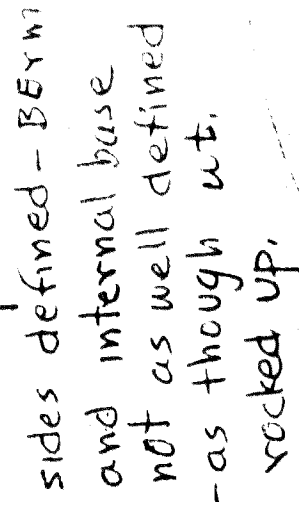 sides defined - BErm
and internal base
not as well defined
- as though wt.
rocked up.